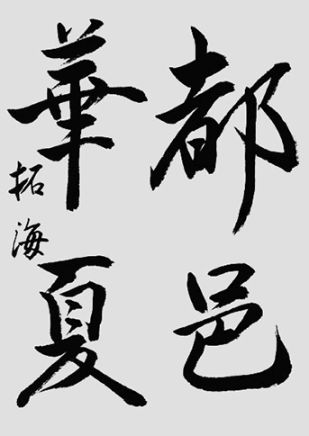 都邑
華夏
拓海